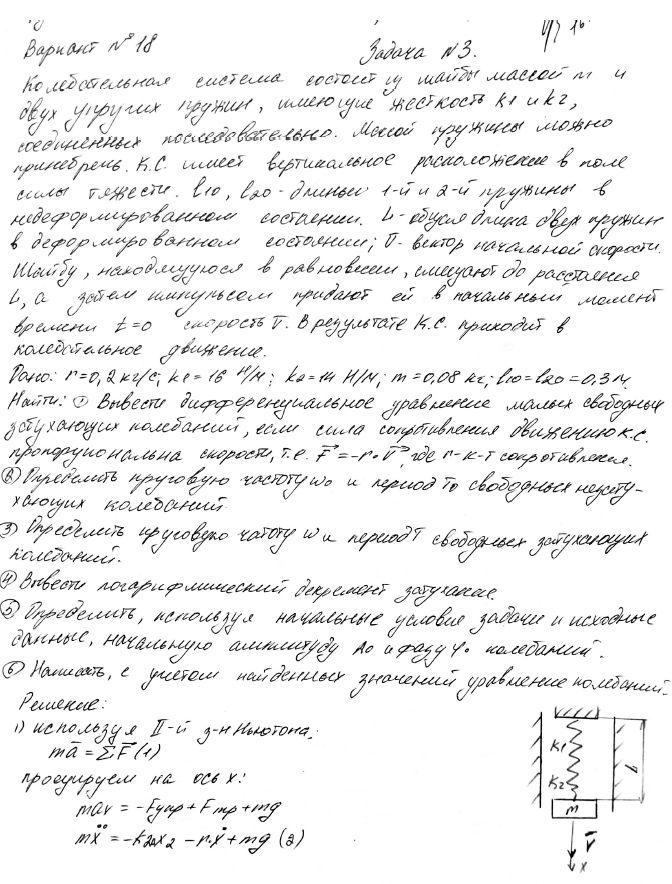 Вариант №18 Задача №3.
Колебательная система состоит из шайбы массой m и
двух упругих пружин, имеющие жесткость k1 и k2,
соединенных последовательно. Массой пружины можно
принебречь. К.С. имеет вертикальное расположение в поле
силы тяжести. l10, l20 - длины 1-й и 2-й пружины в
недеформированном состоянии. L - общая длина двух пружин
в деформированном состоянии; V̄ - вектор начальной скорости.
Шайбу, находящуюся в равновесии, смещают до расстояния
L, а затем импульсом придают ей в начальный момент
времени t=0 скорость V̄. В результате К.С. приходит в
колебательное движение.
Дано: r=0,2 кг/с; k1=16 Н/м; k2=14 Н/м; m=0,08 кг; l10=l20=0,3 м.
Найти: ① Вывести дифференциальное уравнение малых свободных
затухающих колебаний, если сила сопротивления движению К.С.
пропорциональна скорости, т.е. F⃗=-r·V⃗, где r-к-т сопротивления.
② Определить круговую частоту ω0 и период T0 свободных незату-
хающих колебаний
③ Определить круговую частоту ω и период T свободных затухающих
колебаний.
④ Вывести логарифмический декремент затухания.
⑤ Определить, используя начальные условия задачи и исходные
данные, начальную амплитуду A0 и фазу φ0 колебаний.
⑥ Написать, с учетом найденных значений уравнение колебаний.
Решение:
1) используя II-й з-н Ньютона:
mā = ΣF̄ (1)
проецируем на ось x:
max = -Fупр + Fтр + mg
mẍ = -k2x2 - r·ẋ + mg (2)
k1
k2
l
m
V̄
x